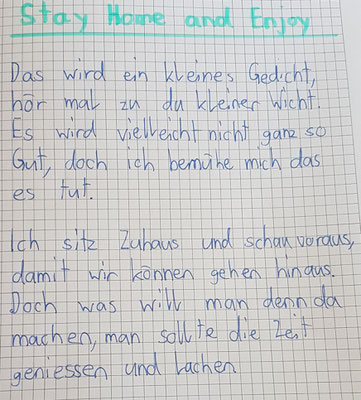 Stay Home and Enjoy
Das wird ein kleines Gedicht,
hör mal zu du kleiner Wicht.
Es wird vielleicht nicht ganz so
Gut, doch ich bemühe mich das
es tut.
Ich sitz Zuhaus und schau voraus,
damit wir können gehen hinaus.
Doch was will man denn da
machen, man sollte die Zeit
geniessen und Lachen